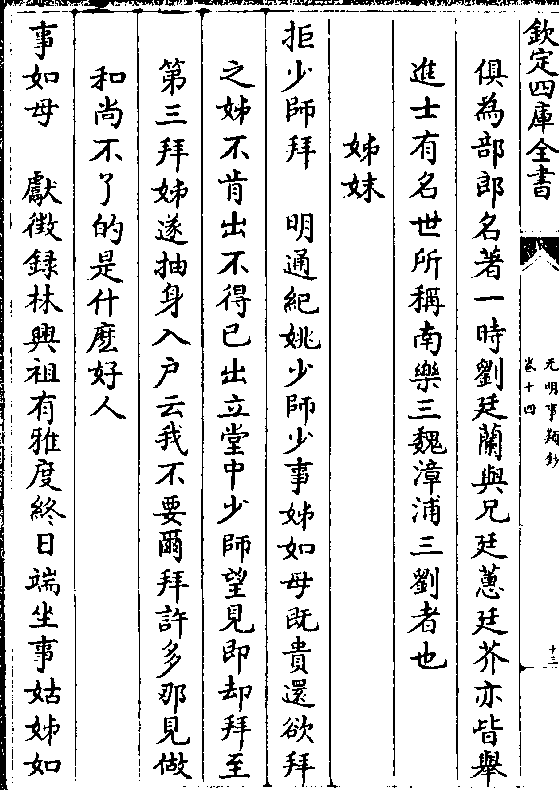 欽定四庫全書
元明事類鈔
卷十四
十三
俱為部郎名著一時劉廷蘭與兄廷蕙廷芥亦皆舉
進士有名世所稱南樂三魏漳浦三劉者也
姊妹
拒少師拜　明通紀姚少師少事姊如母既貴還欲拜
之姊不肯出不得已出立堂中少師望見即却拜至
第三拜姊遂抽身入户云我不要爾拜許多那見做
和尚不了的是什麽好人
事如母　獻徵録林興祖有雅度終日端坐事姑姊如